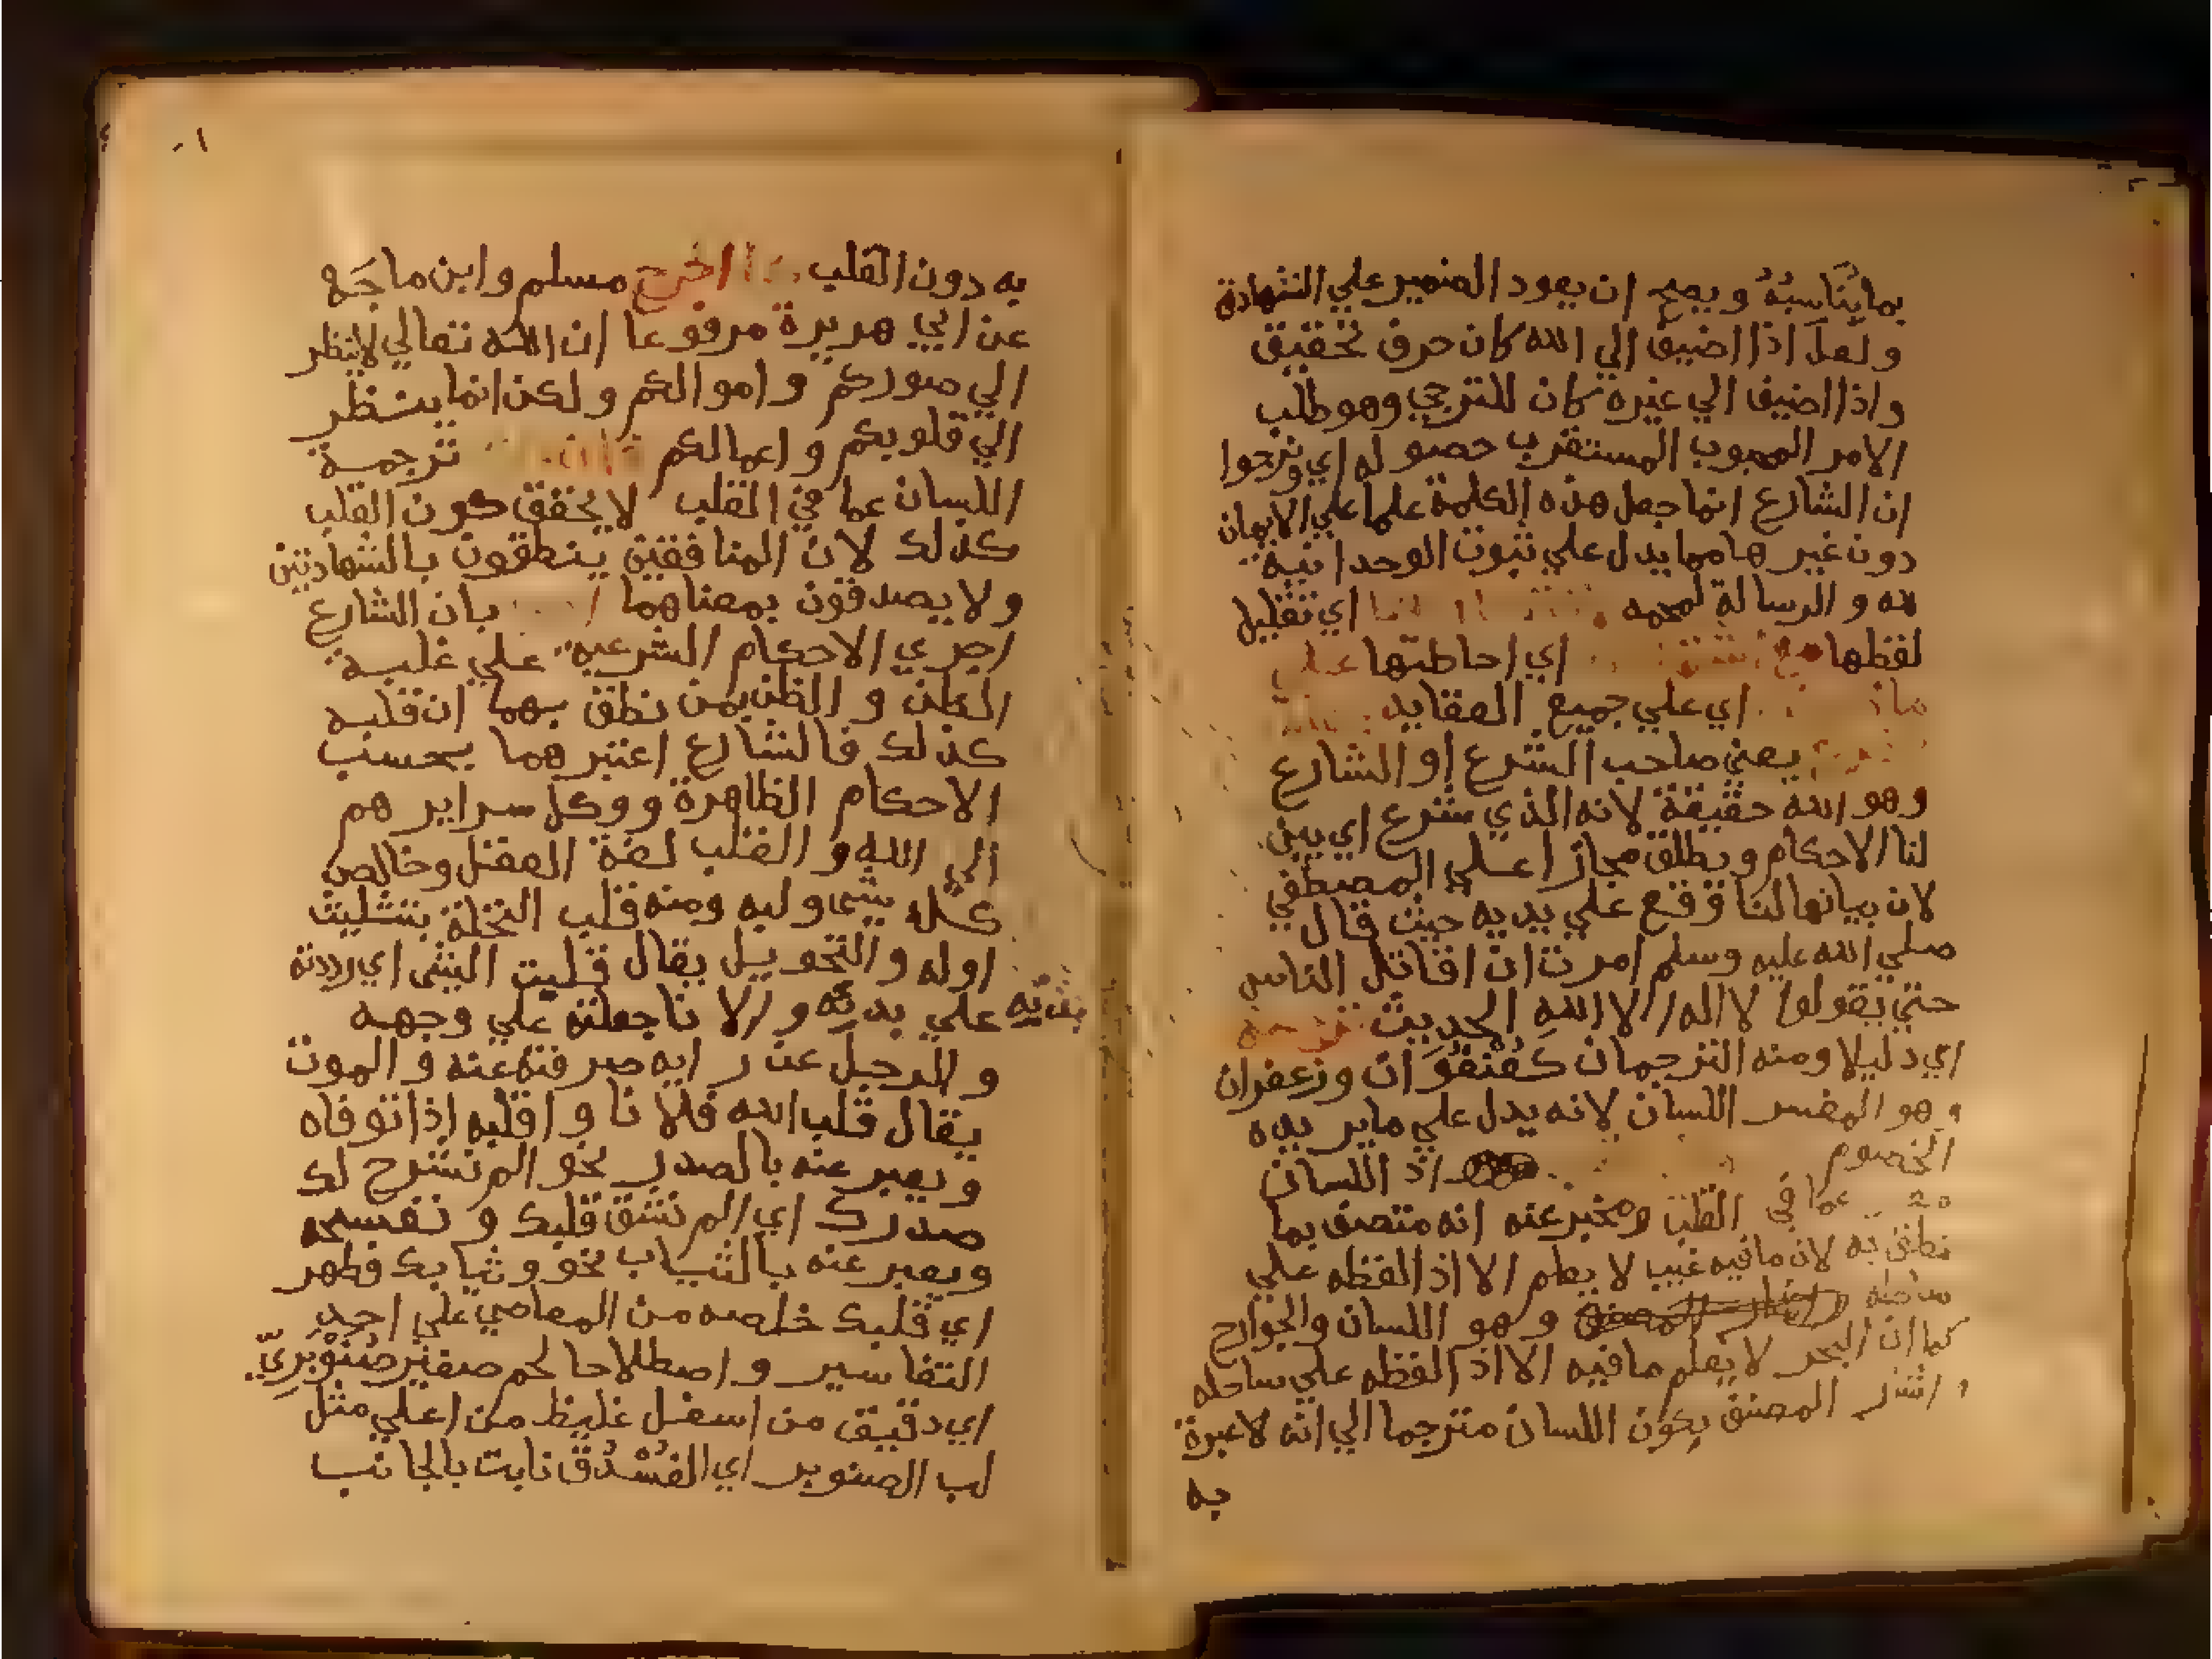 بما يناسبه ويصح ان يعود الضمير علي الشهادة
ولعل اذا اضيف الي الله كان حرف تحقيق
واذا اضيف الي غيره كان للترجي وهو طلب
الامر المحبوب المستقرب حصوله اي ونرجوا
ان الشارع انما جعل هذه الكلمة علما علي الايمان
دون غيرها مما يدل علي ثبوت الوحدانية
لله والرسالة لمحمد اي تقليل
لفظها اي احاطتها علي
اي علي جميع العقايد
يعني صاحب الشرع او الشارع
وهو الله حقيقة لانه الذي شرع اي بين
لنا الاحكام ويطلق مجازا علي المصطفي
لان بيانها لنا وقع علي يديه حيث قال
صلي الله عليه وسلم امرت ان اقاتل الناس
حتي يقولوا لا اله الا الله الحديث ترجمة
اي دليلا ومنه الترجمان كعنفوان وزعفران
وهو المفسر اللسان لانه يدل علي ما يريده
الخصوم اذ اللسان
عما في القلب ومخبر عنه انه متصف بما
نطق به لان ما فيه غيب لا يعلم الا اذا لفظه علي
ساحله وهو اللسان والجوارح
كما ان البحر لا يعلم ما فيه الا اذا لفظه علي ساحله
واشار المصنف بكون اللسان مترجما الي انه لا عبرة
به
به دون القلب اخرج مسلم وابن ماجَه
عن ابي هريرة مرفوعا ان الله تعالي لا ينظر
الي صوركم واموالكم ولكن انما ينظر
الي قلوبكم واعمالكم ترجمة
اللسان عما في القلب لا يحقق كون القلب
كذلك لان المنافقين ينطقون بالشهادتين
ولا يصدقون بمعناهما بان الشارع
اجري الاحكام الشرعيه علي غلبة
الظن و الظن بمن نطق بهما ان قلبه
كذلك فالشارع اعتبرهما بحسب
الاحكام الظاهرة ووكل سرايرهم
الي الله والقلب لغة العقل وخالص
كل شي ولبه ومنه قلب النخلة بتثليث
اوله والتحويل يقال قلبت الشي اي رددته
علي بدئه والانا جعلته علي وجهه
والرجل عن رايه صرفته عنه والموت
يقال قلب الله فلانا واقلبه اذا توفاه
ويعبر عنه بالصدر نحو الم نشرح لك
صدرك اي الم نشق قلبك ونفسحه
ويعبر عنه بالثياب نحو وثيابك فطهر
اي قلبك خلصه من المعاصي علي احد
التفاسير واصطلاحا لحم صغير صُنَوْبَرِيّ
اي دقيق من اسفل غليظ من اعلي مثل
لب الصنوبر اي الفُسْدُق نابت بالجانب